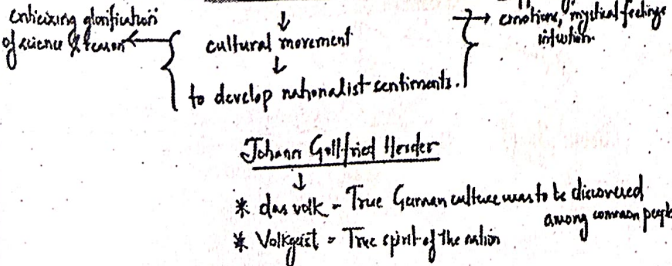 criticizing glorification
of science & reason
cultural movement
to develop nationalist sentiments.
emotions, mystical feelings
intuition.
Johann Gottfried Herder
* das volk - True German culture was to be discovered
among common people
* Volkgeist - True spirit of the nation